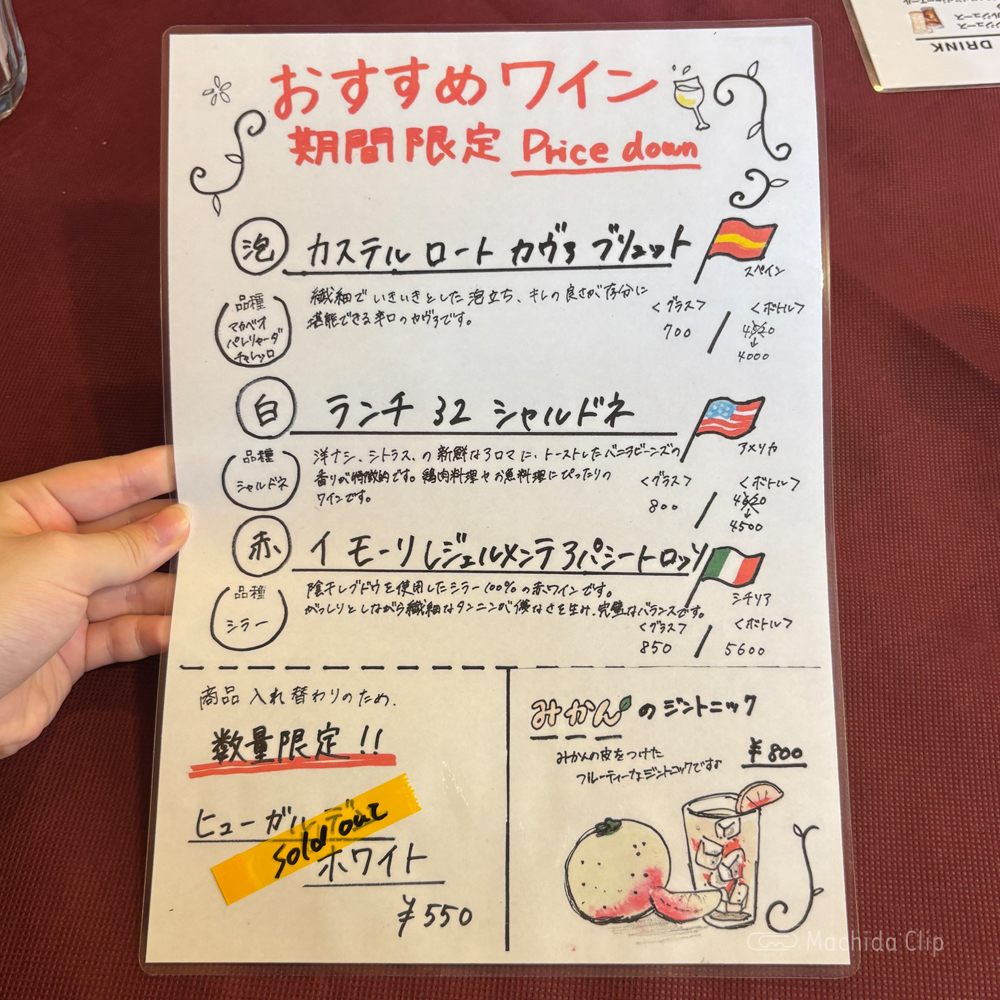 おすすめワイン
期間限定 Price down
泡
カステル ロート カヴァ ブリュット
スペイン
品種
マカベオ
パレリャーダ
チャレッロ
繊細でいきいきとした泡立ち、キレの良さが存分に
堪能できる辛口のカヴァです。
<グラス> <ボトル>
700 / 4520
↓
4000
白
ランチ 32 シャルドネ
アメリカ
品種
シャルドネ
洋ナシ、シトラス、の新鮮なアロマに、トーストしたバニラビーンズの
香りが特徴的です。鶏肉料理やお魚料理にぴったりの
ワインです。
<グラス> <ボトル>
800 /
↓
4500
赤
イ モーリ レジェルメンテ アパシート ロッソ
シチリア
品種
シラー
陰干しブドウを使用したシラー100%の赤ワインです。
がっしりとしながら繊細なタンニンが優美さを生け、完璧なバランスです。
<グラス> <ボトル>
850 / 5600
商品入れ替わりのため、
数量限定!!
ヒューガルデン
Sold out
ホワイト
¥550
みかんのジントニック
みかんの皮をつけた
フルーティーなジントニックです。
¥800
DRINK
Machida Clip